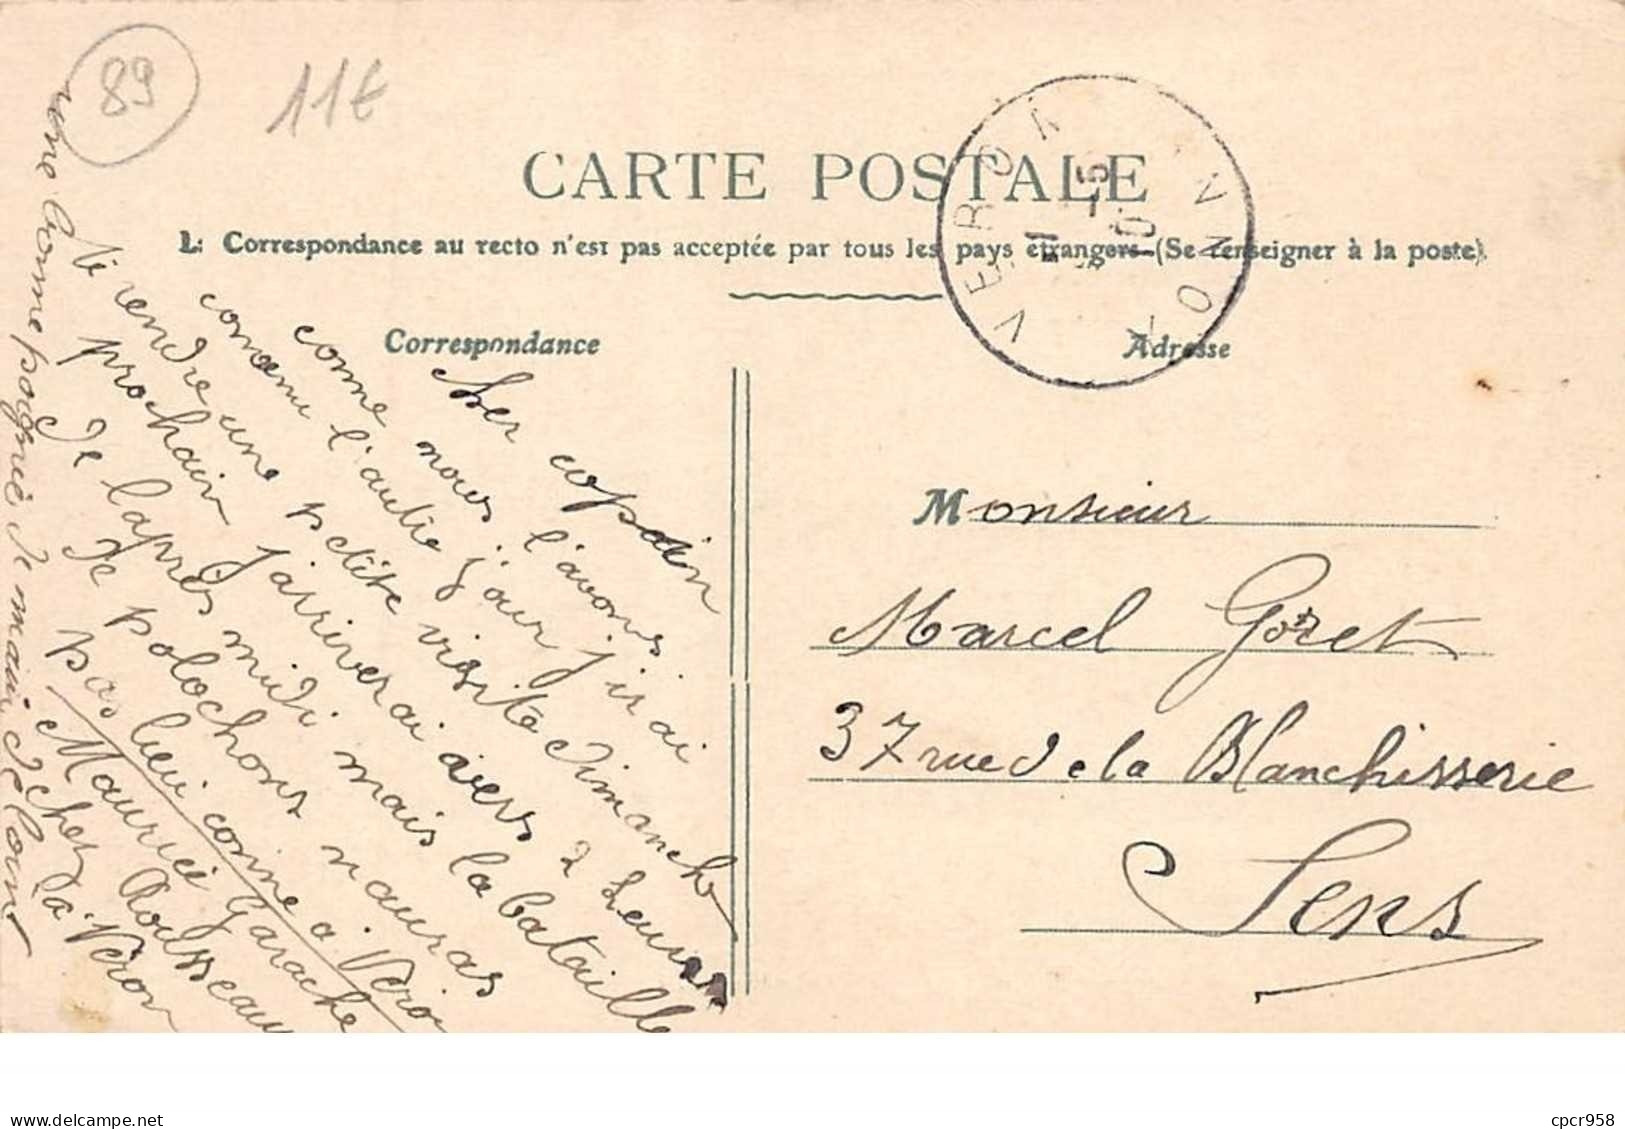 89
11€
CARTE POSTALE
La Correspondance au recto n'est pas acceptée par tous les pays étrangers (Se renseigner à la poste)
VERON
11 -5
10
YONNE
Correspondance
Adresse
Cher copain
comme nous l'avons
convenu l'autre jour j'irai
te rendre une petite visite dimanche
prochain j'arriverai vers 2 heures
de l'après midi mais la bataille
de polochons n'auras
pas lieu comme a Véron
Maurice Garache
chez Rousseau
à Véron
une bonne poignée de main de loin
Monsieur
Marcel Goret
37 rue de la Blanchisserie
Sens
www.delcampe.net
cpcr958